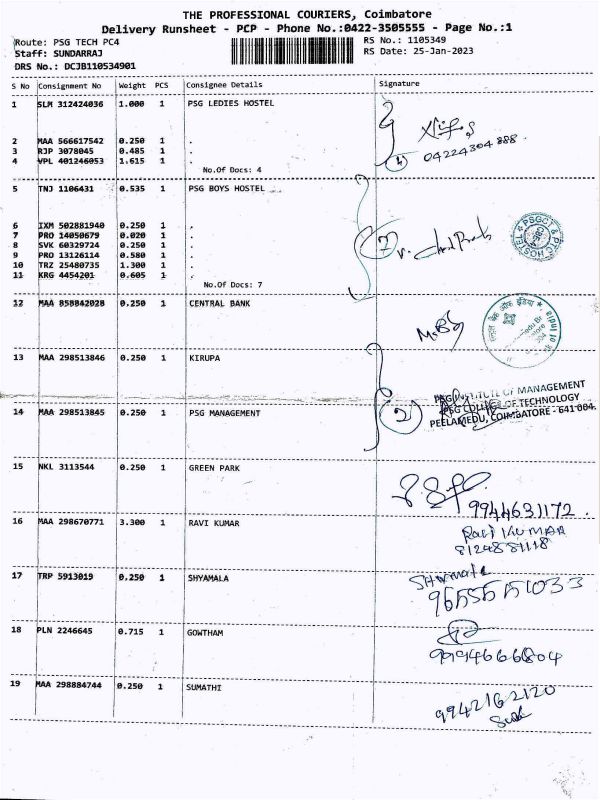 THE PROFESSIONAL COURIERS, Coimbatore
Delivery Runsheet - PCP - Phone No.:0422-3505555 - Page No.:1
Route: PSG TECH PC4
RS No.: 1105349
Staff: SUNDARRAJ
RS Date: 25-Jan-2023
DRS No.: DCJB110534901
S No Consignment No Weight PCS Consignee Details Signature
1 SLM 312424036 1.000 1 PSG LEDIES HOSTEL
2 MAA 566617542 0.250 1 .
3 RJP 3078045 0.485 1 .
4 VPL 401246053 1.615 1 .
04224304888
4
No.Of Docs: 4
5 TNJ 1106431 0.535 1 PSG BOYS HOSTEL
6 IXM 502881940 0.250 1 .
7 PRO 14050679 0.020 1 .
8 SVK 60329724 0.250 1 .
9 PRO 13126114 0.580 1 .
10 TRZ 25480735 1.300 1 .
11 KRG 4454201 0.605 1 .
7
PSGCT & PTC HOSTEL
No.Of Docs: 7
12 MAA 858842028 0.250 1 CENTRAL BANK
13 MAA 298513846 0.250 1 KIRUPA
PSG INSTITUTE OF MANAGEMENT
PSG COLLEGE OF TECHNOLOGY
PEELAMEDU, COIMBATORE - 641 004.
2
14 MAA 298513845 0.250 1 PSG MANAGEMENT
15 NKL 3113544 0.250 1 GREEN PARK
9944631172
16 MAA 298670771 3.300 1 RAVI KUMAR
Ravi KUMAR
8124881118
17 TRP 5913019 0.250 1 SHYAMALA
9655551033
18 PLN 2246645 0.715 1 GOWTHAM
9994666804
19 MAA 298884744 0.250 1 SUMATHI
9942162120